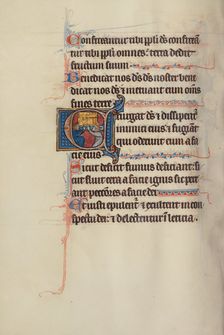 Confiteantur tibi ppli ds confitean
tur tibi ppli omnes: terra dedit
fructum suum.
Benedicat nos ds ds noster bene
dicat nos ds: et metuant eum oms
fines terre.
Exurgat ds et dissipent
inimici eius: et fugiant
qui oderunt eum a fa
cie eius.
Sicut deficit fumus deficiant: si
cut fluit cera a facie ignis sic pe
ant peccores a facie dei.
Et iusti epulent et exultent in con
spectu dei: et delectentur in leticia.